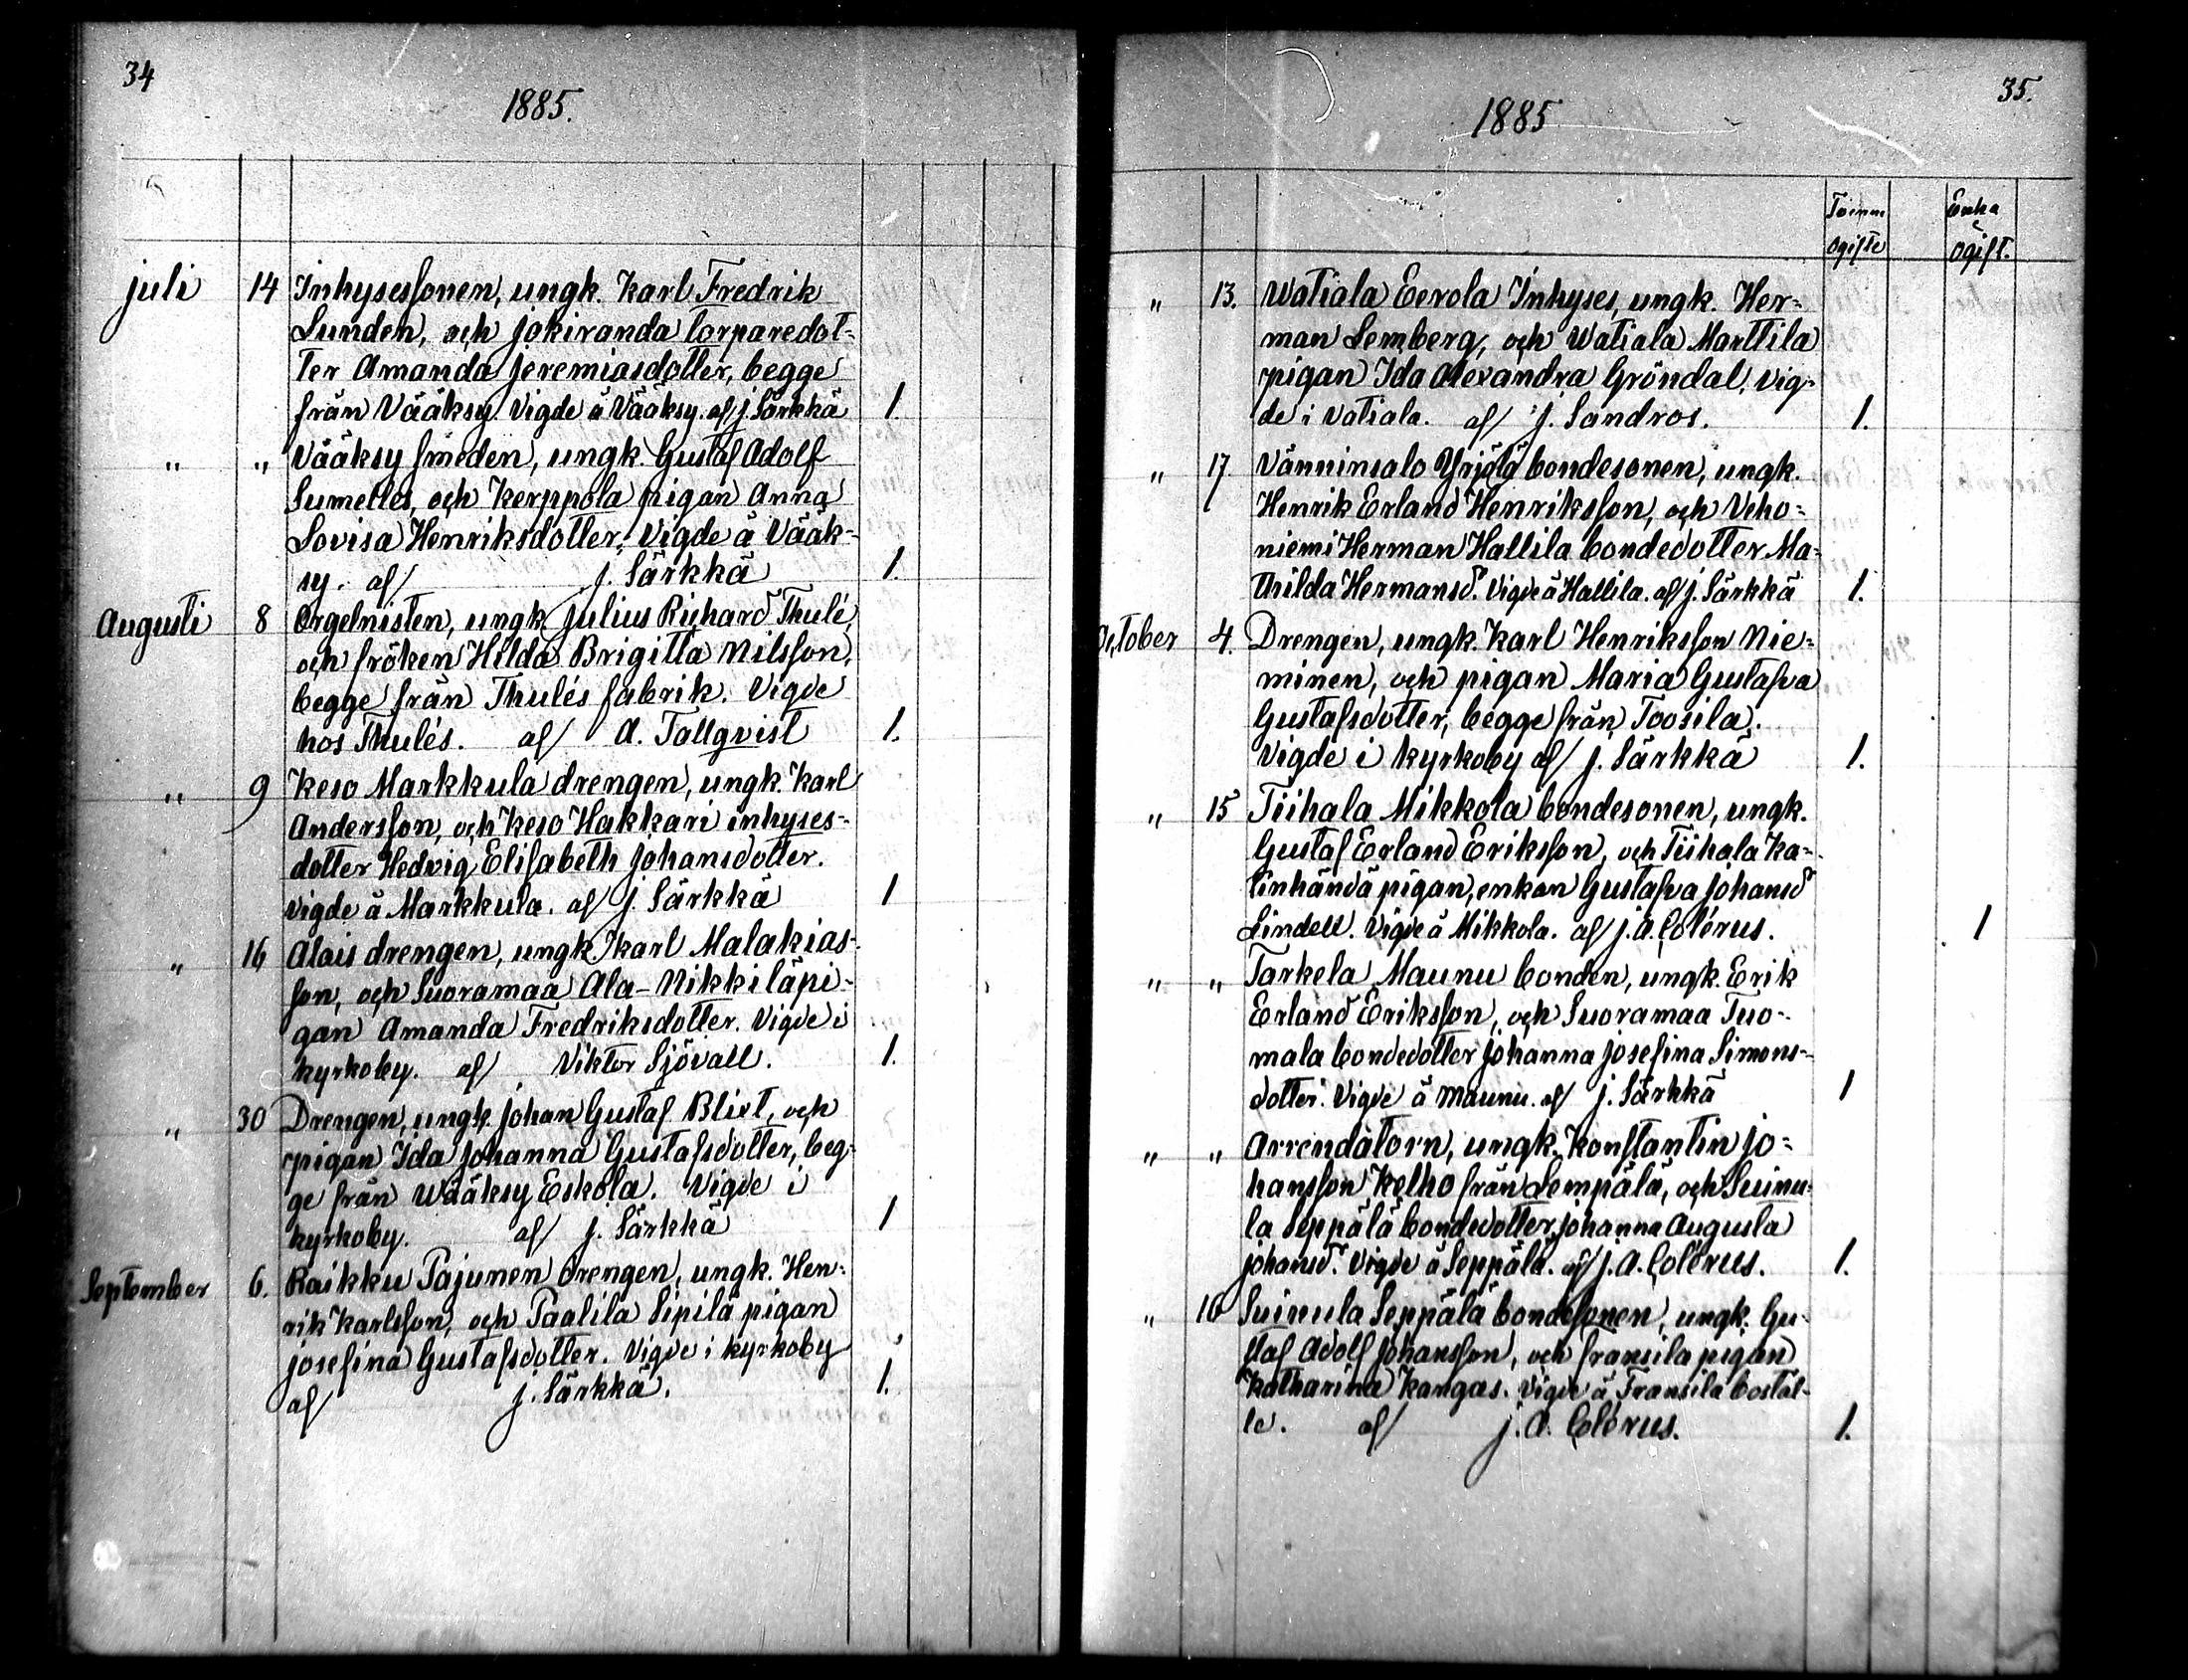 34
1885.
juli 14 Inhysessonen, ungk. Karl Fredrik
Lunden, och Jokiranda torparedot-
ter Amanda Jeremiasdotter, begge
från Vääksy. Vigde å Vääksy. af J. Särkkä 1.
" " Vääksy smeden, ungk. Gustaf Adolf
Sumelles, och Kerppola pigan Anna
Lovisa Henriksdotter. Vigde å Vääk-
sy. af J. Särkkä 1.
Augusti 8 Orgelnisten, ungk. Julius Richard Thulé,
och fröken Hilda Brigitta Nilsson,
begge från Thulés fabrik. Vigde
hos Thulés. af A. Tallqvist 1.
" 9 Keso Markkula drengen, ungk. Karl
Andersson, och Keso Hakkari inhyses-
dotter Hedvig Elisabeth Johansdotter.
Vigde å Markkula. af J. Särkkä 1
" 16 Alais drengen, ungk. Karl Malakias-
son, och Suoramaa Ala-Nikkilä pi-
gan Amanda Fredriksdotter. Vigde i
kyrkoby. af Viktor Sjövall. 1.
" 30 Drengen, ungk. Johan Gustaf Blixt, och
pigan Ida Johanna Gustafsdotter, beg-
ge från Wääksy Eskola. Vigde i
kyrkoby. af J. Särkkä 1
September 6. Raikku Pajunen drengen, ungk. Hen-
rik Karlsson, och Paalila Sipilä pigan
Josefina Gustafsdotter. Vigde i kyrkoby
af J. Särkkä. 1.
35.
1885
Ogifte Ogift.
" 13. Watiala Eerola Inhyses, ungk. Her-
man Lemberg, och Watiala Marttila
pigan Ida Alexandra Gröndal. Vig-
de i Vatiala. af J. Sandros. 1.
" 17 Vänninsalo Yrjölä bondesonen, ungk.
Henrik Erland Henriksson, och Veho-
niemi Herman Hallila bondedotter Ma-
thilda Hermansd. Vigde å Hallila. af J. Särkkä 1.
October 4. Drengen, ungk. Karl Henriksson Nie-
minen, och pigan Maria Gustafva
Gustafsdotter, begge från Toosila.
Vigde i kyrkoby af J. Särkkä 1.
" 15 Tiihala Mikkola bondesonen, ungk.
Gustaf Erland Eriksson, och Tiihala Ka-
tinhändä pigan, enkan Gustafva Johansd
Lindell. Vigde å Mikkola. af J. A. Colérus. 1
" " Tarkela Maunu bonden, ungk. Erik
Erland Eriksson, och Suoramaa Tuo-
mala bondedotter Johanna Josefina Simons-
dotter. Vigde å Maunu. af J. Särkkä 1
" " Arrendatorn, ungk. Konstantin Jo-
hansson Kelho från Lempälä, och Suinu-
la Seppälä bondedotter Johanna Augusta
Johansd. Vigde å Seppälä. af J. A. Colérus. 1.
" 16 Suinula Seppälä bondesonen, ungk. Gu-
staf Adolf Johansson, och Fransila pigan
Katharina Kangas. Vigde å Fransila bostäl-
le. af J. A. Colérus. 1.